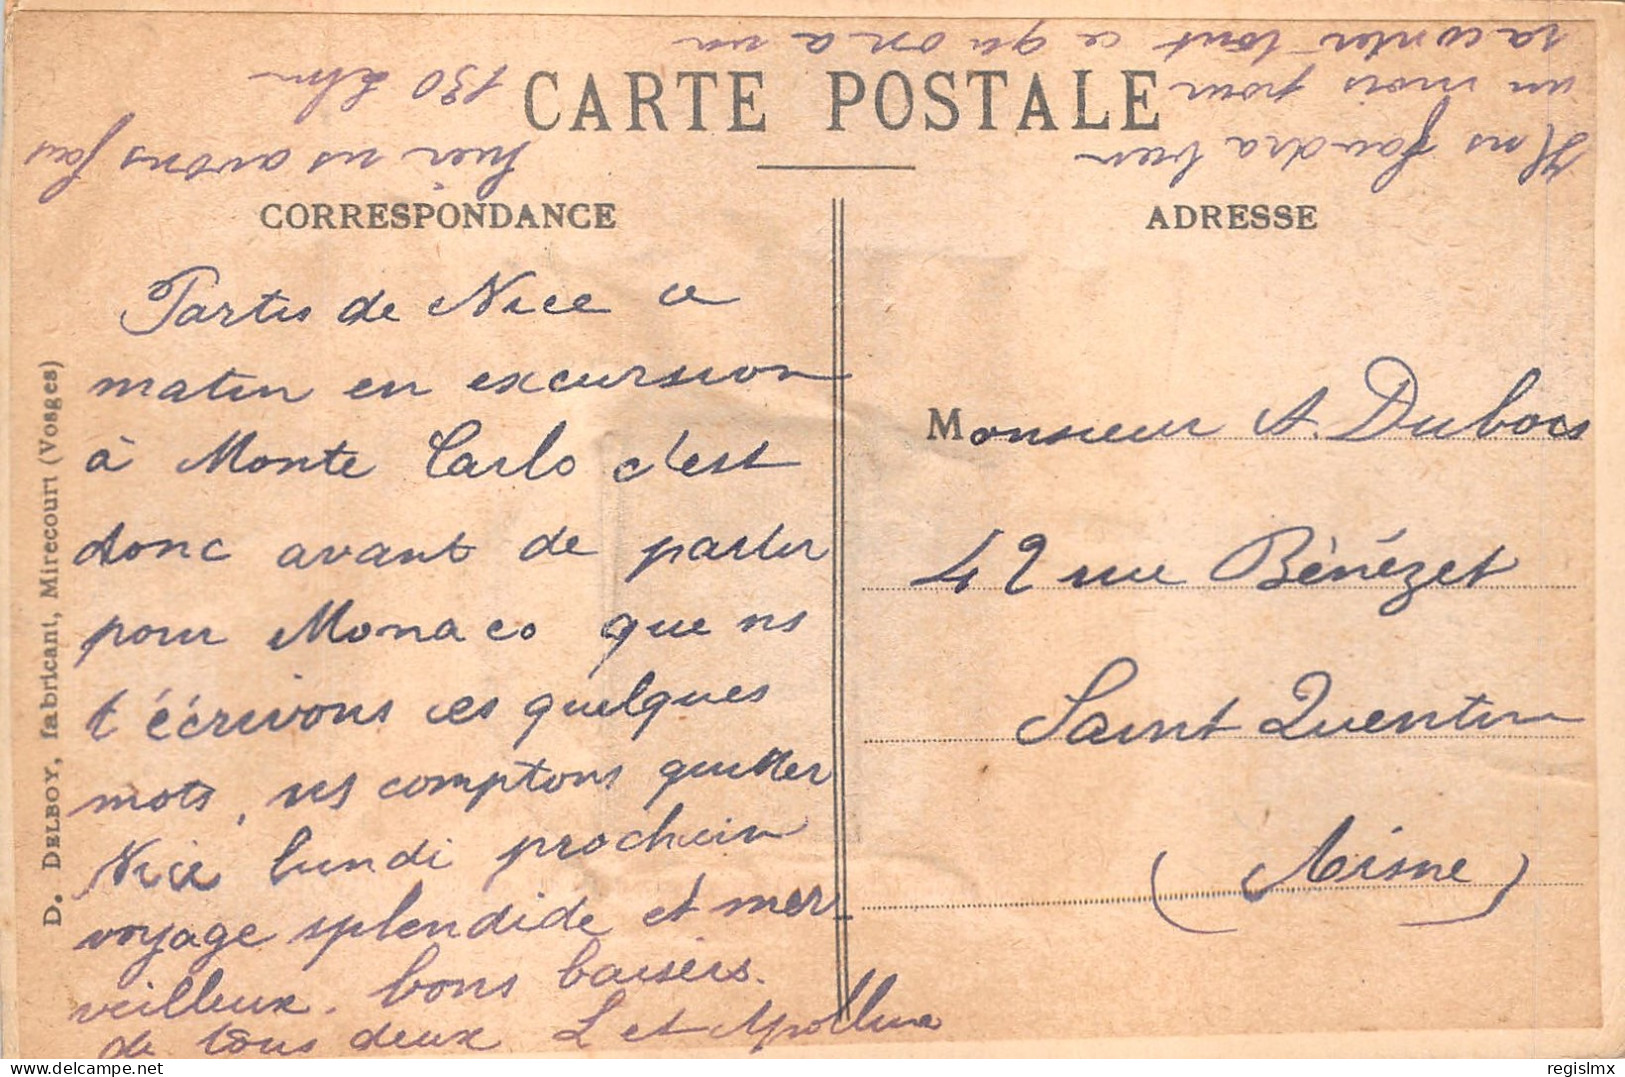 CARTE POSTALE
CORRESPONDANCE
Partis de Nice ce
matin en excursion
à Monte Carlo c'est
donc avant de partir
pour Monaco que ns
t'écrivons ces quelques
mots, ns comptons quitter
Nice lundi prochain
voyage splendide et mer
veilleux. bons baisers.
de tous deux L et Apolline
hier ns avons fait
130 klm
Il ns faudra bien
un mois pour
raconter tout ce qu on a vu
ADRESSE
Monsieur A. Dubois
42 rue Bénézet
Saint Quentin
(Aisne)
D. DELBOY, fabricant, Mirecourt (Vosges)
regislmx